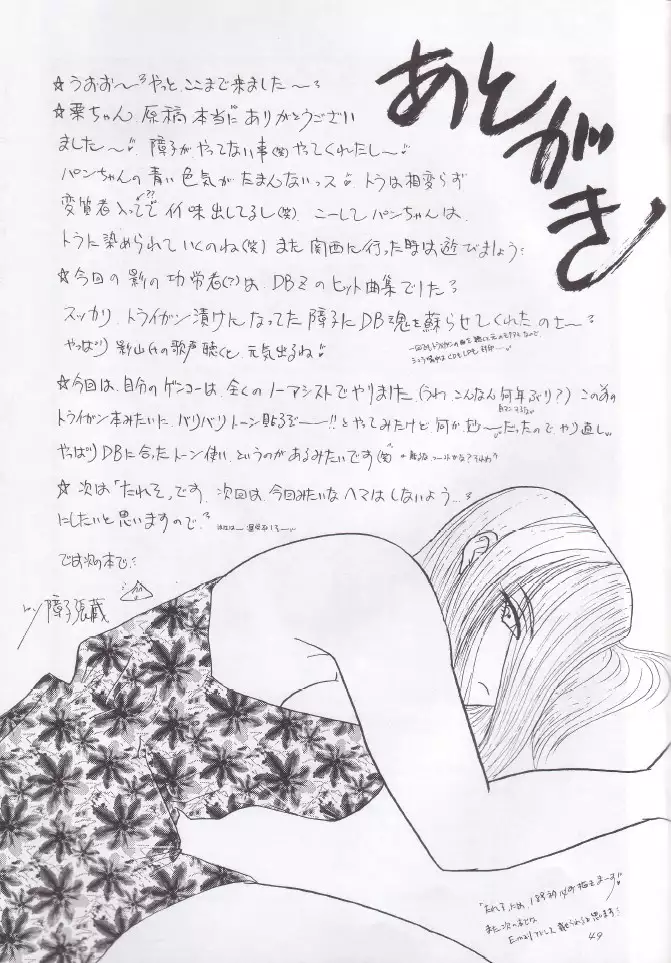 あとがき
☆うおお〜やっと、ここまで来ました〜
☆栗ちゃん、原稿本当にありがとうござい
ました〜 障子がやってない事(笑)やってくれたし〜
パンちゃんの青い色気がたまんないっス トラは相変らず
変質者入ってて イイ味出してるし(笑) こーしてパンちゃんは、
トラに染められていくのね(笑) また関西に行った時は遊びましょう
☆今回の影の功労者(?)は、DBZのヒット曲集でした
スッカリ、トライガン漬けになってた障子にDB魂を蘇らせてくれたのさ〜
やっぱり影山さんの歌声聴くと、元気出るね
☆今回は、自分のゲンコーは、全くのノーアシストでやりました(うわ、こんなん何年ぶり?) この前の
トライガン本みたいに、バリバリトーン貼るぞー!!とやってみたけど何か、妙〜だったので、やり直し。
やっぱりDBに合ったトーン使い、というのがあるみたいです(笑)
☆次は「たれぞ」です、次回は、今回みたいなヘマはしないよう…
にしたいと思いますので
では次の本で
障子張蔵
また次の本とか
Emailアドレス載せられると思います
49